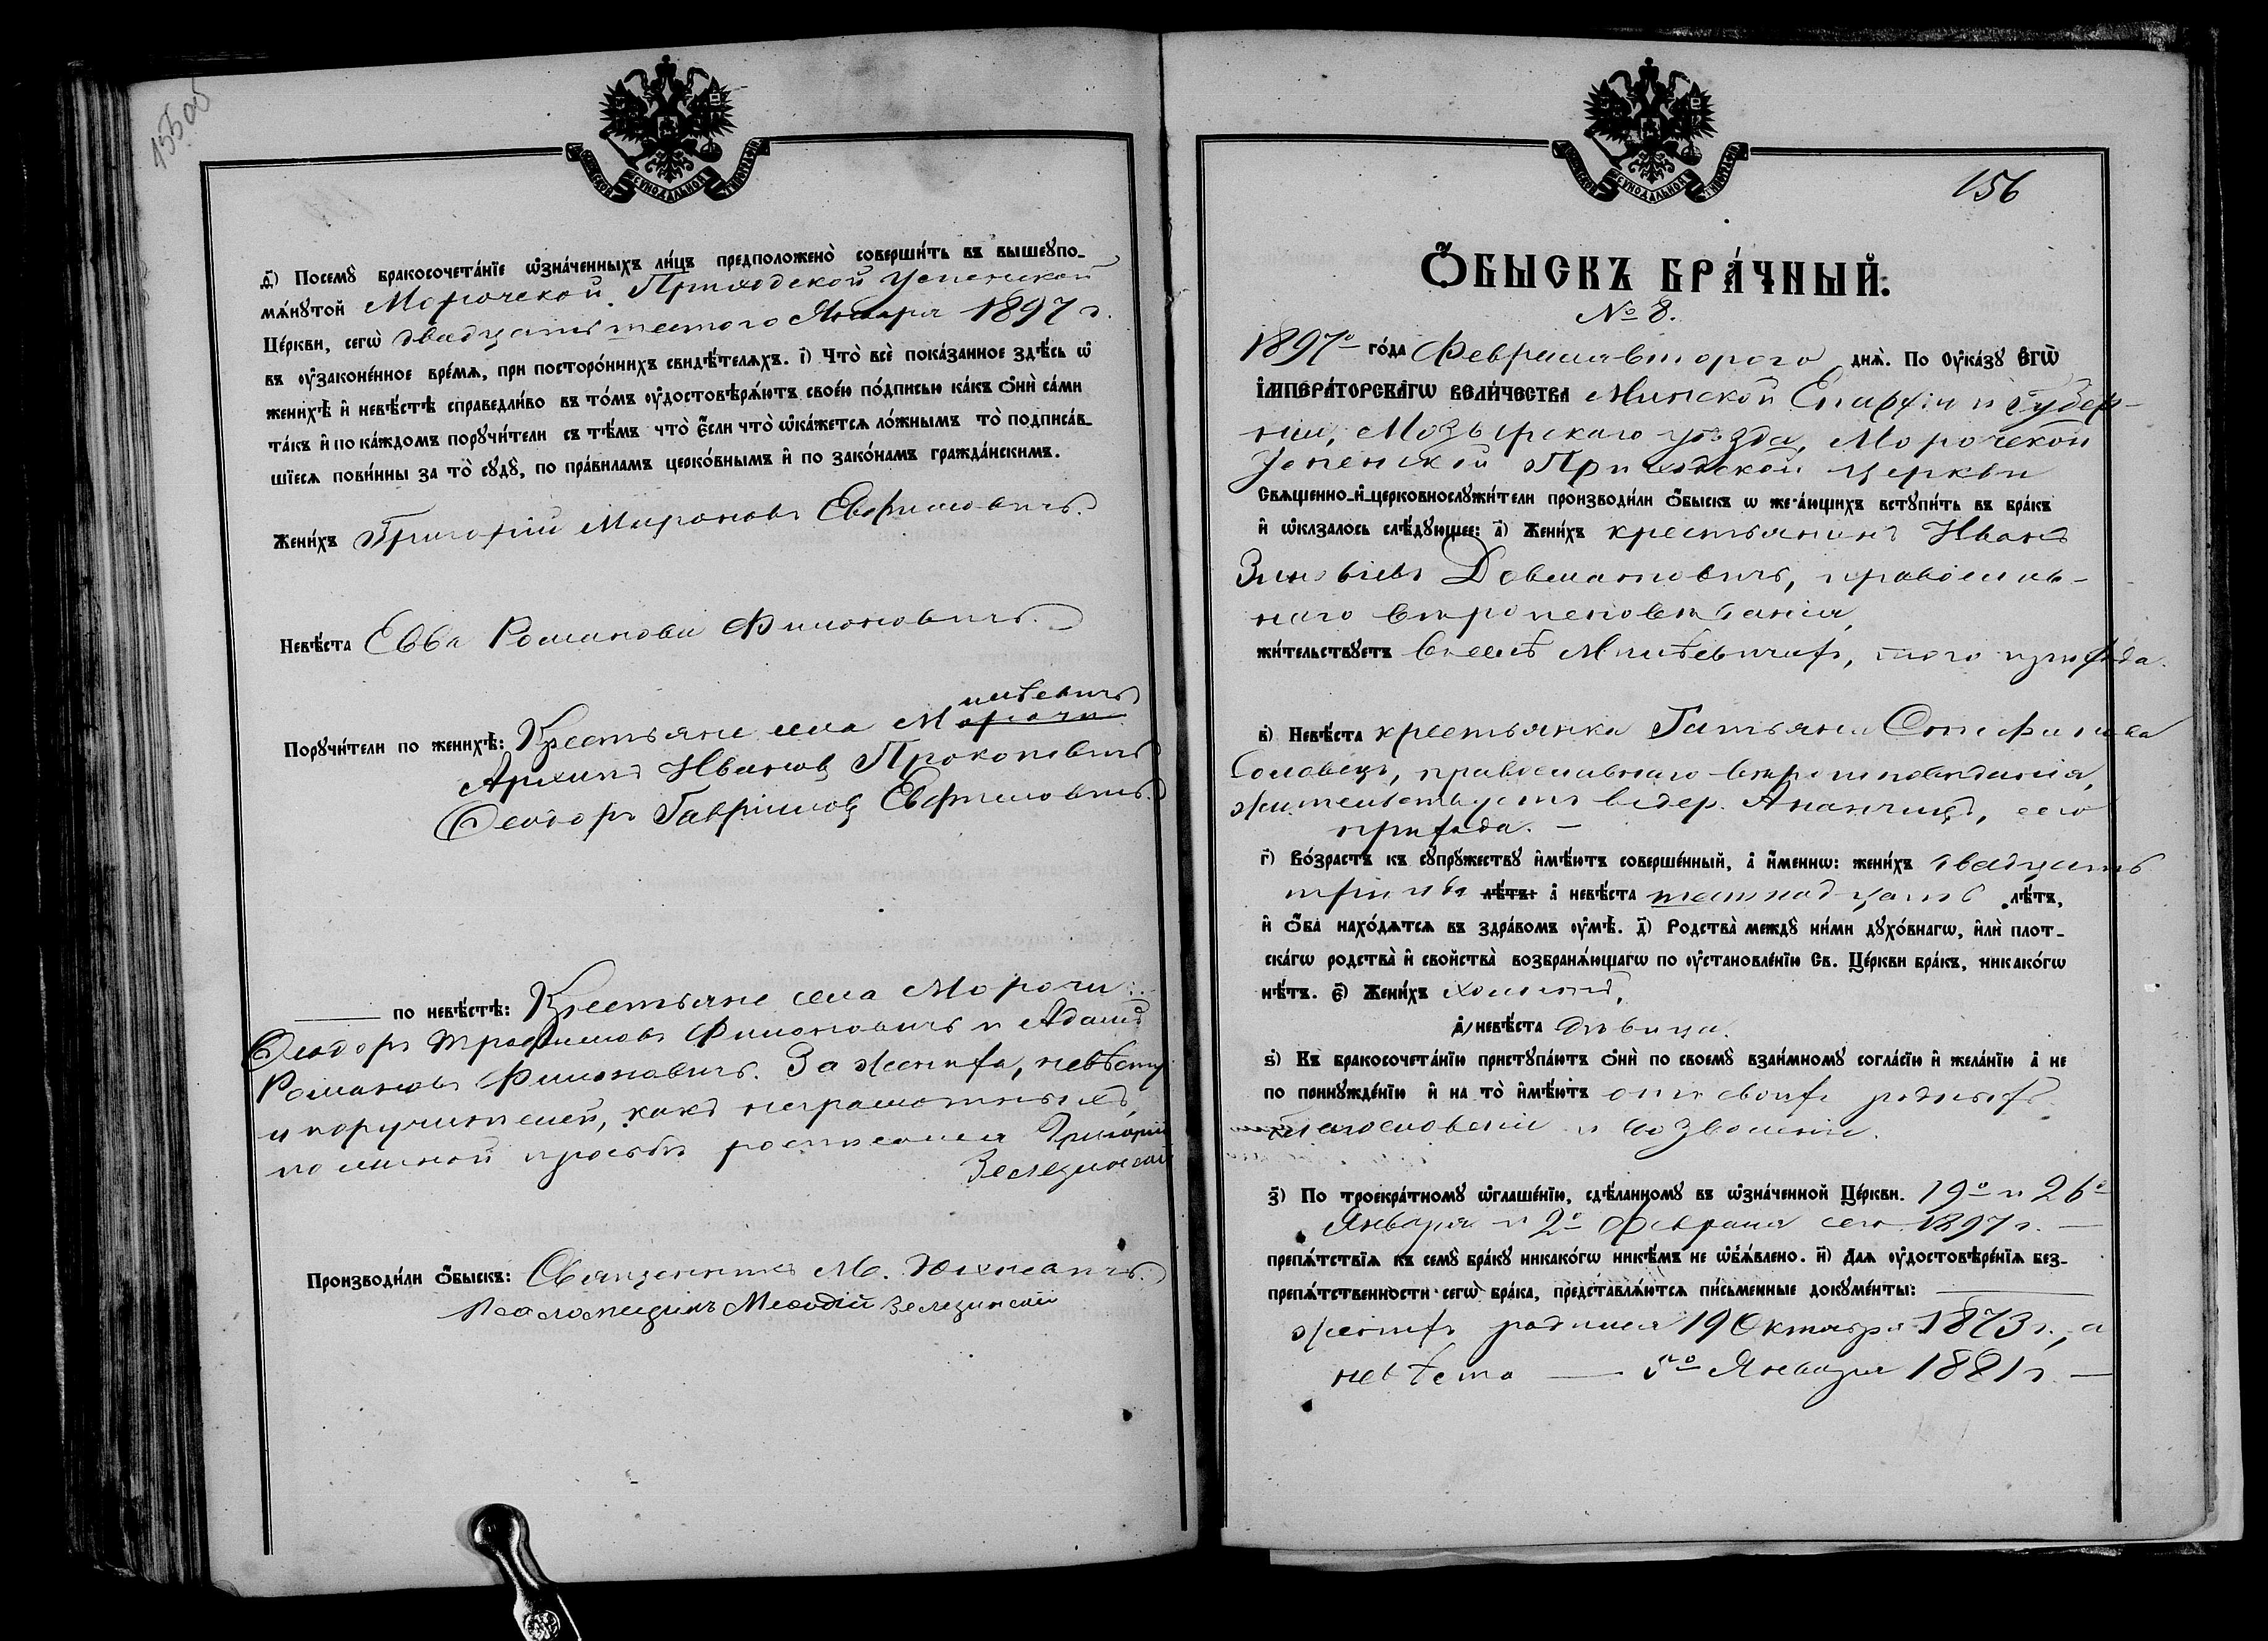 155 об
МОСКОВСКОЙ СѴНОДАЛЬНОЙ ТИПОГРАФІИ
д҃і) Посемꙋ̀ бракосочета́нїе ѡ҆зна́ченныхъ ли́цъ предположено̀ соверши́ть въ вышеꙋпо-
мѧ́нꙋтой Морочской Приходской Успенской
Це́ркви, сегѡ̀ двадцать шестого Января 1897 г.
въ ᲂу҆законе́нное вре́мѧ, при посторо́ннихъ свидѣ́телѧхъ. і҃) Что̀ всѐ пока́занное здѣ́сь ѡ҆
женихѣ̀ и҆ невѣ́стѣ справедли́во въ то́мъ ᲂу҆достовѣрѧ́ютъ свое́ю по́дписью ка́къ ѻ҆нѝ са́ми
та́къ и҆ по ка́ждомъ порꙋчи́тели съ тѣ́мъ что̀ є҆́сли что̀ ѡ҆ка́жетсѧ ло́жнымъ то̀ подписа́в-
шїесѧ пови́нны за то̀ сꙋдꙋ̀, по пра́виламъ церко́внымъ и҆ по зако́намъ гражда́нскимъ.
Жени́хъ Григорій Мироновъ Евфимовичъ.
Невѣ́ста Евва Романова Филоновичъ.
милевичъ
Порꙋчи́тели по женихѣ̀: Крестьяне села Морочи
Архипъ Ивановъ Прокоповичъ
Ѳеодоръ Гавріиловъ Евфимовичъ.
по невѣ́стѣ: Крестьяне села Морочи:
Ѳеодоръ Трофимовъ Филоновичъ и Адамъ
Романовъ Филоновичъ. За жениха, невѣсту
и поручителей, какъ неграмотныхъ,
по личной просьбѣ росписался Григорій
Зелезинскій
Производи́ли ѻ҆́быскъ: Священникъ М. Юхневичъ.
Псаломщикъ Меѳодій Зелезинскій
МОСКОВСКОЙ СѴНОДАЛЬНОЙ ТИПОГРАФІИ
156
Ѻ҆́БЫСКЪ БРА́ЧНЫЙ:
№ 8.
1897го го́да Февраля второго днѧ̀. По ᲂу҆ка́зꙋ Е҆ГѠ̀
І҆МПЕРА́ТОРСКАГѠ ВЕЛИ́ЧЕСТВА Минской Епархіи и Губер-
ніи, Мозырскаго уѣзда, Морочской
Успенской Приходской церкви
Свѧщенно-и҆-церковнослꙋжи́тели производи́ли ѻ҆́быскъ ѡ҆ жела́ющихъ встꙋпи́ть въ бра́къ
и҆ ѡ҆казалось слѣ́дꙋющее: а҃) Жени́хъ крестьянинъ Иванъ
Зиновіевъ Довмановичъ, православ-
наго вѣроисповѣданія,
жи́тельствꙋетъ въ селѣ Милевичахъ, того прихода.
в҃) Невѣ́ста крестьянка Татьяна Стефанова
Соловецъ, православнаго вѣроисповѣданія,
жительствуетъ въ дер. Ананчицѣ, сего
прихода. —
г҃) Во́зрастъ къ сꙋпрꙋ́жествꙋ и҆мѣ́ютъ соверше́нный, а҆ и҆́меннѡ: жени́хъ двадцать
три года лѣ́тъ: а҆ невѣ́ста шестнадцать лѣ́тъ,
и҆ ѻ҆́ба нахо́дѧтсѧ въ здра́вомъ ᲂу҆мѣ̀. д҃) Родства̀ междꙋ̀ ни́ми дꙋхо́внагѡ, и҆лѝ плот-
ска́гѡ родства̀ и҆ сво́йства̀ возбранѧ́ющагѡ по ᲂу҆становле́нїю Св. Це́ркви бра́къ, никако́гѡ
нѣ́тъ. є҃) Жени́хъ холостъ,
а҆/невѣ́ста дѣвица.
ѕ҃) Къ бракосочета́нїю пристꙋпа́ютъ ѻ҆нѝ по своемꙋ̀ взаи́мному согла́сїю и҆ жела́нїю а҆ не
по принꙋжде́нїю и҆ на то̀ и҆мѣ́ютъ отъ своихъ родныхъ
благословеніе и дозволеніе.
з҃) По троекра́тномꙋ ѡ҆глаше́нїю, сдѣ́ланномꙋ въ ѡ҆зна́ченной Це́ркви. 19го и 26го
Января и 2го февраля сего 1897 г. —
препѧ́тствїѧ къ семꙋ̀ бра́кꙋ никако́гѡ никѣ́мъ не ѡ҆б̾ѧ́влено. и҃) Длѧ ᲂу҆достовѣре́нїѧ без-
препѧ́тственности сегѡ̀ бра́ка, представлѧ́ютсѧ пи́сьменные докꙋме́нты:
женихъ родился 19 Октября 1873 г., а
невѣста — 5го Января 1881 г. —